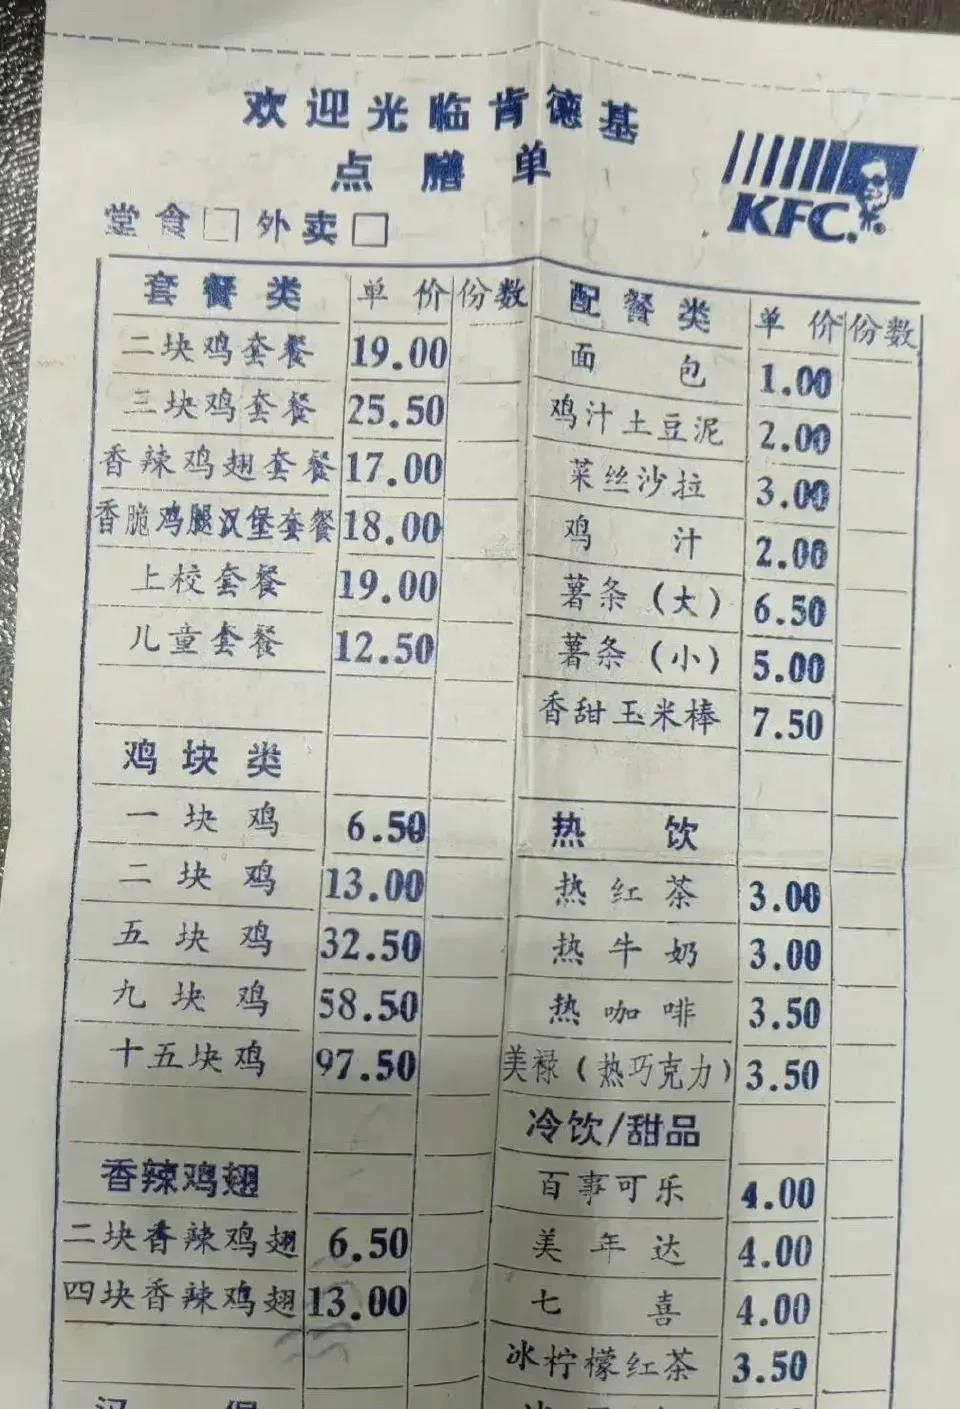 欢迎光临肯德基
点膳单
KFC.
堂食□ 外卖□
套餐类 单价 份数
二块鸡套餐 19.00
三块鸡套餐 25.50
香辣鸡翅套餐 17.00
香脆鸡腿汉堡套餐 18.00
上校套餐 19.00
儿童套餐 12.50
鸡块类
一块鸡 6.50
二块鸡 13.00
五块鸡 32.50
九块鸡 58.50
十五块鸡 97.50
香辣鸡翅
二块香辣鸡翅 6.50
四块香辣鸡翅 13.00
配餐类 单价 份数
面包 1.00
鸡汁土豆泥 2.00
菜丝沙拉 3.00
鸡汁 2.00
薯条(大) 6.50
薯条(小) 5.00
香甜玉米棒 7.50
热饮
热红茶 3.00
热牛奶 3.00
热咖啡 3.50
美禄(热巧克力) 3.50
冷饮/甜品
百事可乐 4.00
美年达 4.00
七喜 4.00
冰柠檬红茶 3.50